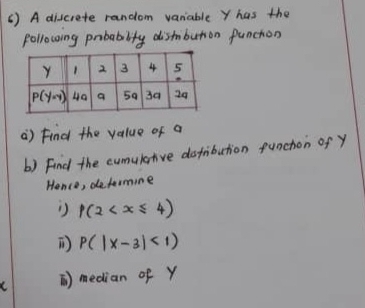 6) A discrete random variable Y has the
following probability distribution function
Y 1 2 3 4 5
P(Y=y) 4a a 5a 3a 2a
a) Find the value of a
b) Find the cumulative distribution function of Y
Hence, determine
i) P(2 < x ≤ 4)
ii) P( |x-3| < 1)
iii) median of Y